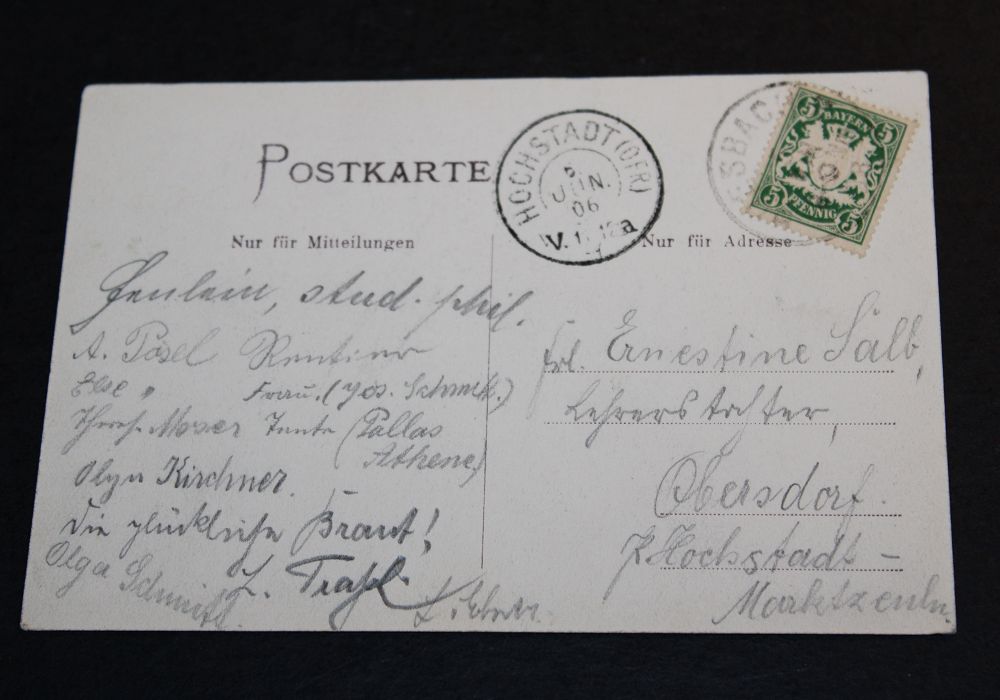 POSTKARTE
HOCHSTADT (OFR)
5
JUN.
06
V. 1
SBAC
5 BAYERN 5
5 PFENNIG 5
Nur für Mitteilungen
Nur für Adresse
Fenlein, stud. phil.
A. Posel Rentier
Else " Frau. (Jos. Schmelz.)
Theres. Moser Tante (Pallas
Athene)
Olga Kirchner.
Die glückliche Braut!
Olga Schmitt.
Frl. Ernestine Salb,
Lehrerstochter,
Obersdorf.
P. Hochstadt -
Marktzeuln.